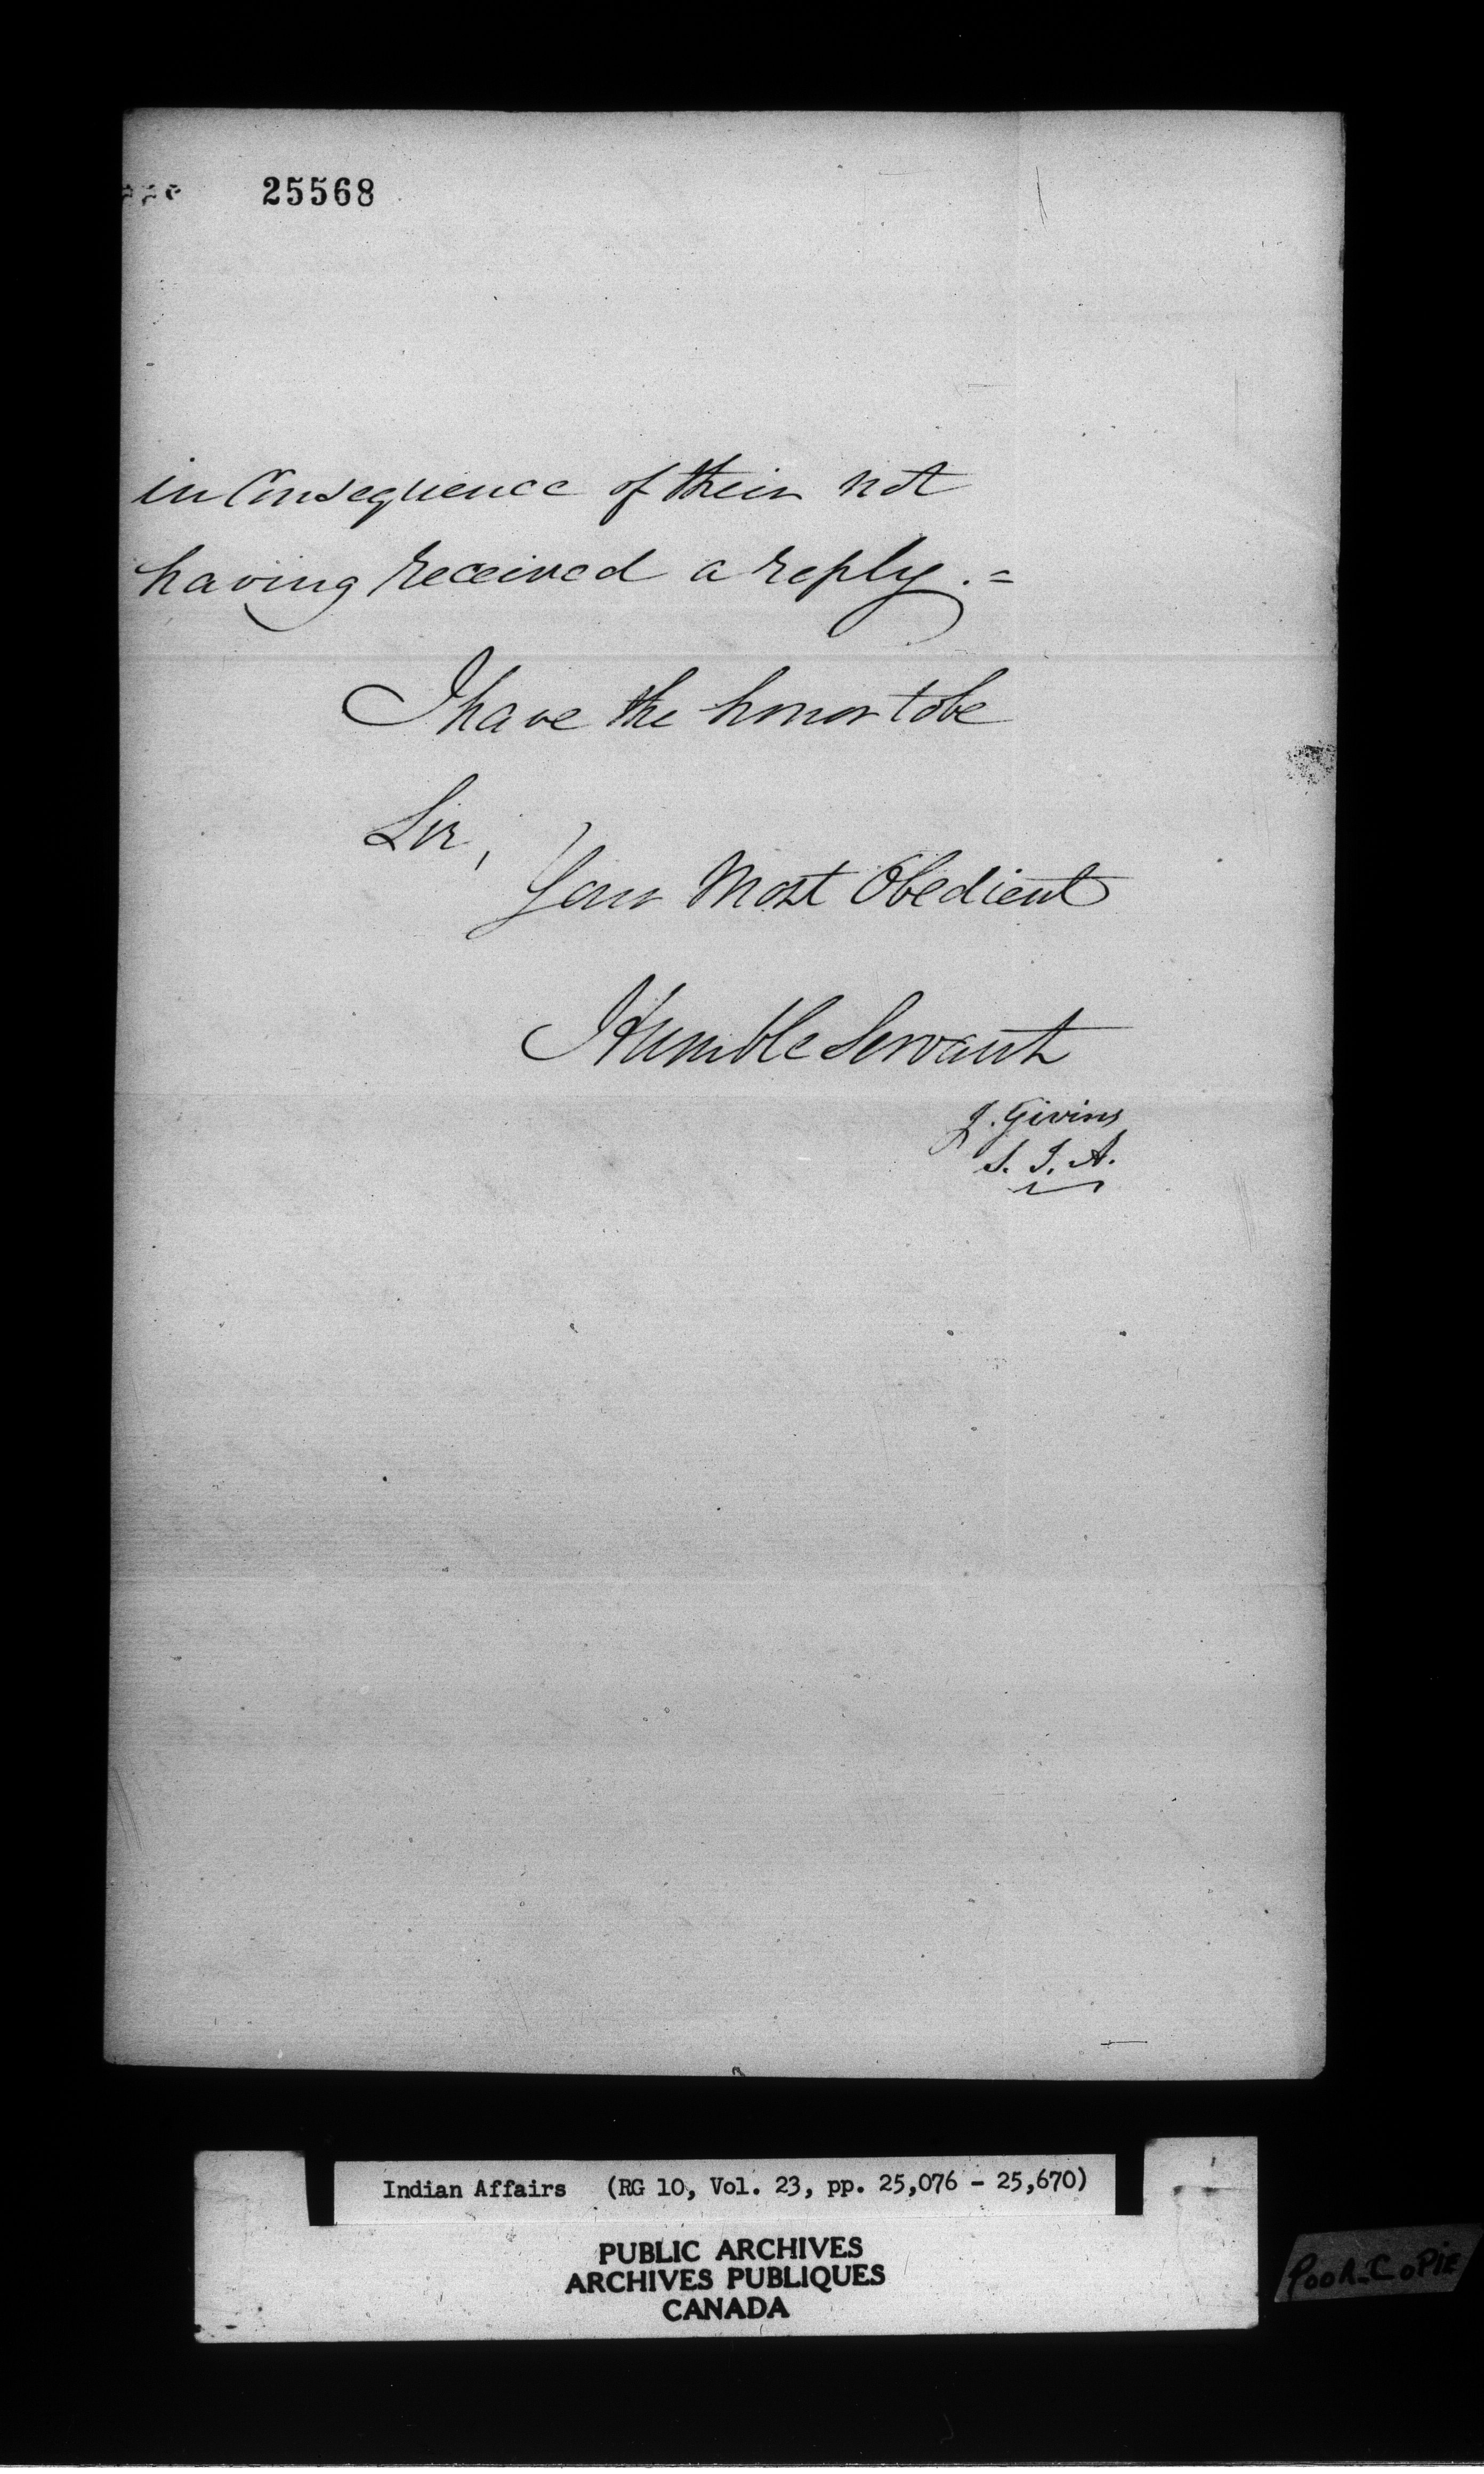 25568
in Consequence of their not
having received a reply. =
I have the honor to be
Sir,
Your Most Obedient
Humble Servant
J. Givins
S. I. A.
Indian Affairs (RG 10, Vol. 23, pp. 25,076 - 25,670)
PUBLIC ARCHIVES
ARCHIVES PUBLIQUES
CANADA
POOR COPIE